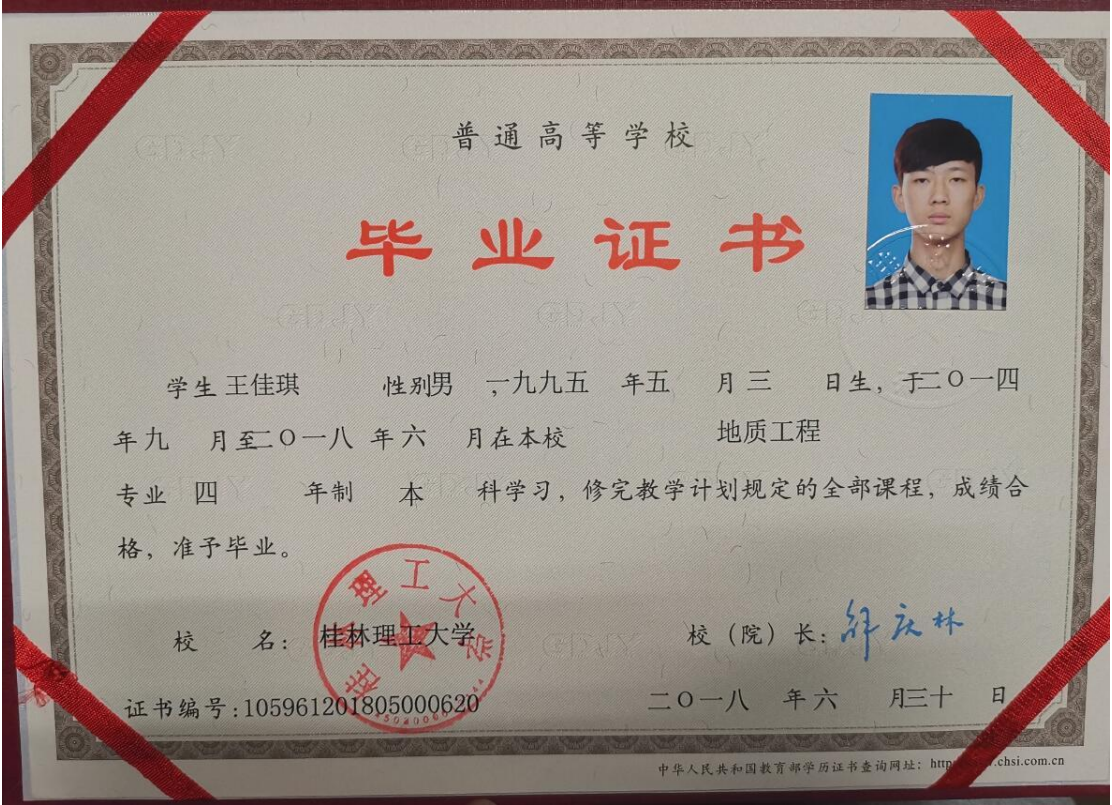 普通高等学校
毕业证书
学生 王佳琪 性别 男 ,一九九五 年 五 月 三 日生,于二〇一四
年 九 月至二〇一八 年 六 月在本校 地质工程
专业 四 年制 本 科学习,修完教学计划规定的全部课程,成绩合
格,准予毕业。
桂林理工大学
校 名: 桂林理工大学 校(院)长:
证书编号:105961201805000620 二〇一八 年 六 月三十 日
中华人民共和国教育部学历证书查询网址: http .chsi.com.cn